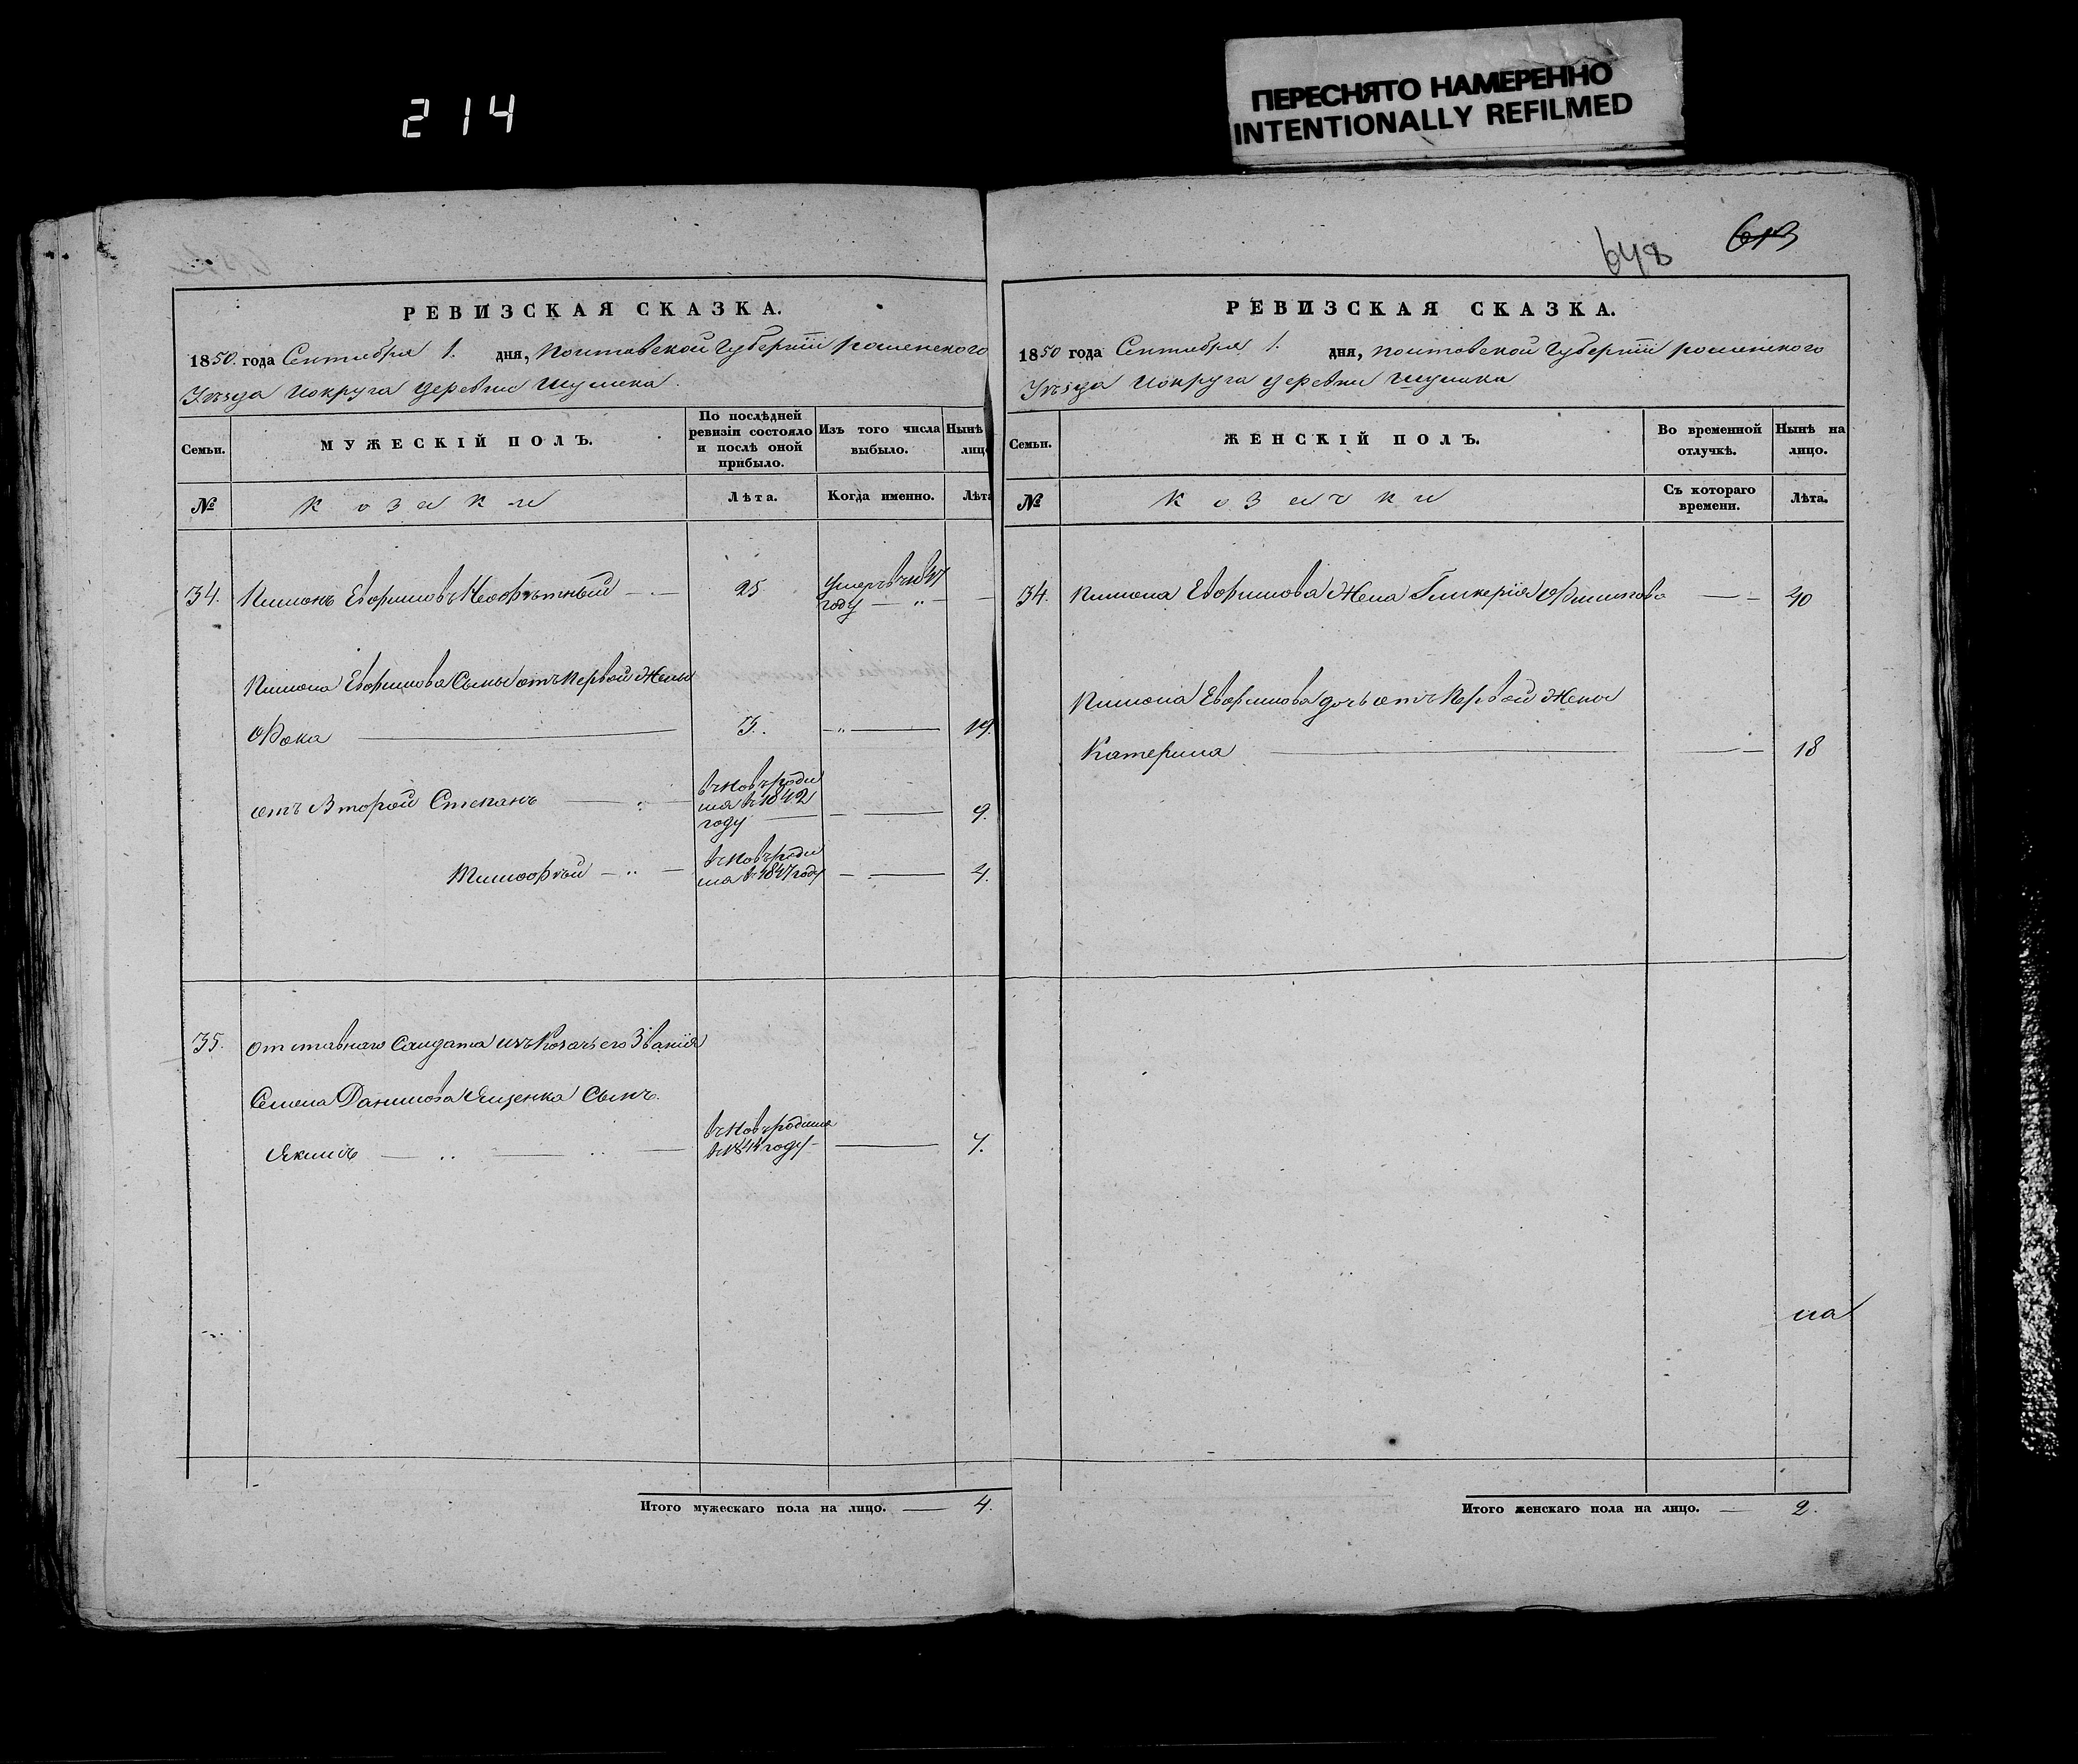 214
ПЕРЕСНЯТО НАМЕРЕННО
INTENTIONALLY REFILMED
648
613
РЕВИЗСКАЯ СКАЗКА.
1850. года Сентября 1. дня, Полтавской Губерніи роменского
Уѣзда и округа деревни Шумила.
Семьи.
МУЖЕСКІЙ ПОЛЪ.
По послѣдней ревизіи состояло и послѣ оной прибыло.
Изъ того числа выбыло.
Нынѣ
лиц
№
козаки
Лѣта.
Когда именно.
Лѣта
34. Пимонъ Евфимовъ 25 умеръ в
году
Пимона Евфимова Сыны отъ Первой Жены
Фока 19.
отъ Второй Степанъ вновь роди
лся в 1842
году 9.
Тимофѣй вновь роди
лся в 1847 году 4.
35. отставнаго Салдата изъ Козачьего Званія
Семена Данилова Ященка Сынъ.
Якимъ вновь родился
в 1844 году 7.
Итого мужескаго пола на лицо. 4.
РЕВИЗСКАЯ СКАЗКА.
1850 года Сентября 1. дня, полтавской Губерніи роменского
Уѣзда и округа деревни Шумила
Семьи.
ЖЕНСКІЙ ПОЛЪ.
Во временной отлучкѣ.
Нынѣ на лицо.
№
козачки
Съ котораго времени.
Лѣта.
34. Пимона Евфимова Жена Гликерія 40
Пимона Евфимова дочь отъ Первой Жены
Катерина 18
на
Итого женскаго пола на лицо. 2.